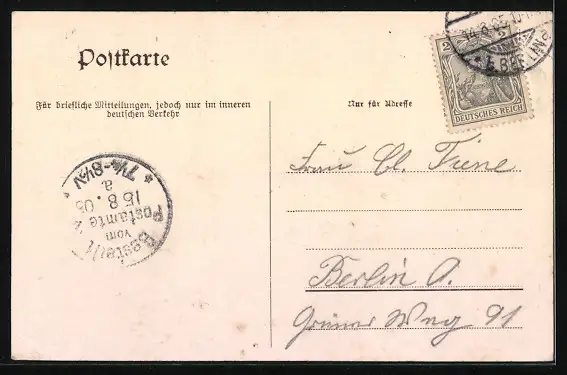 Postkarte
Für briefliche Mitteilungen, jedoch nur im inneren
deutschen Verkehr
Nur für Adresse
2 2
DEUTSCHES REICH
14.8.05.10-11
BERLIN
Frau Cl. Fiene
Berlin O.
Grüner Weg 91
Bestellt
vom
Postamte
15.8.05
a
7¼-8½V